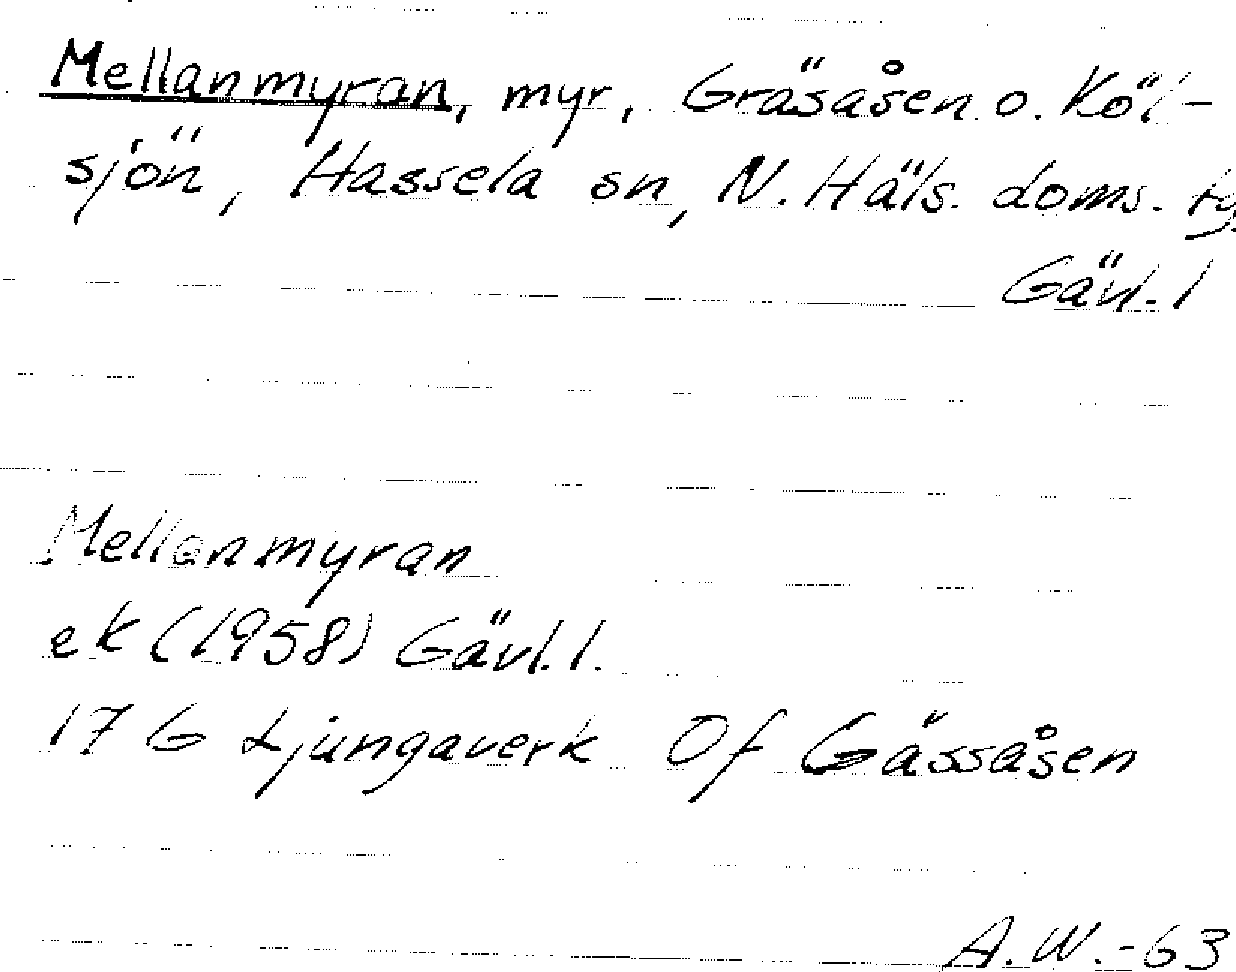 Mellanmyran, myr, Gräsåsen o. Köl-
sjön, Hassela sn, N. Häls. doms. tg.
Gävl. l
Mellanmyran
ek (1958) Gävl. l.
17 G Ljungaverk Of Gässåsen
A.W.-63